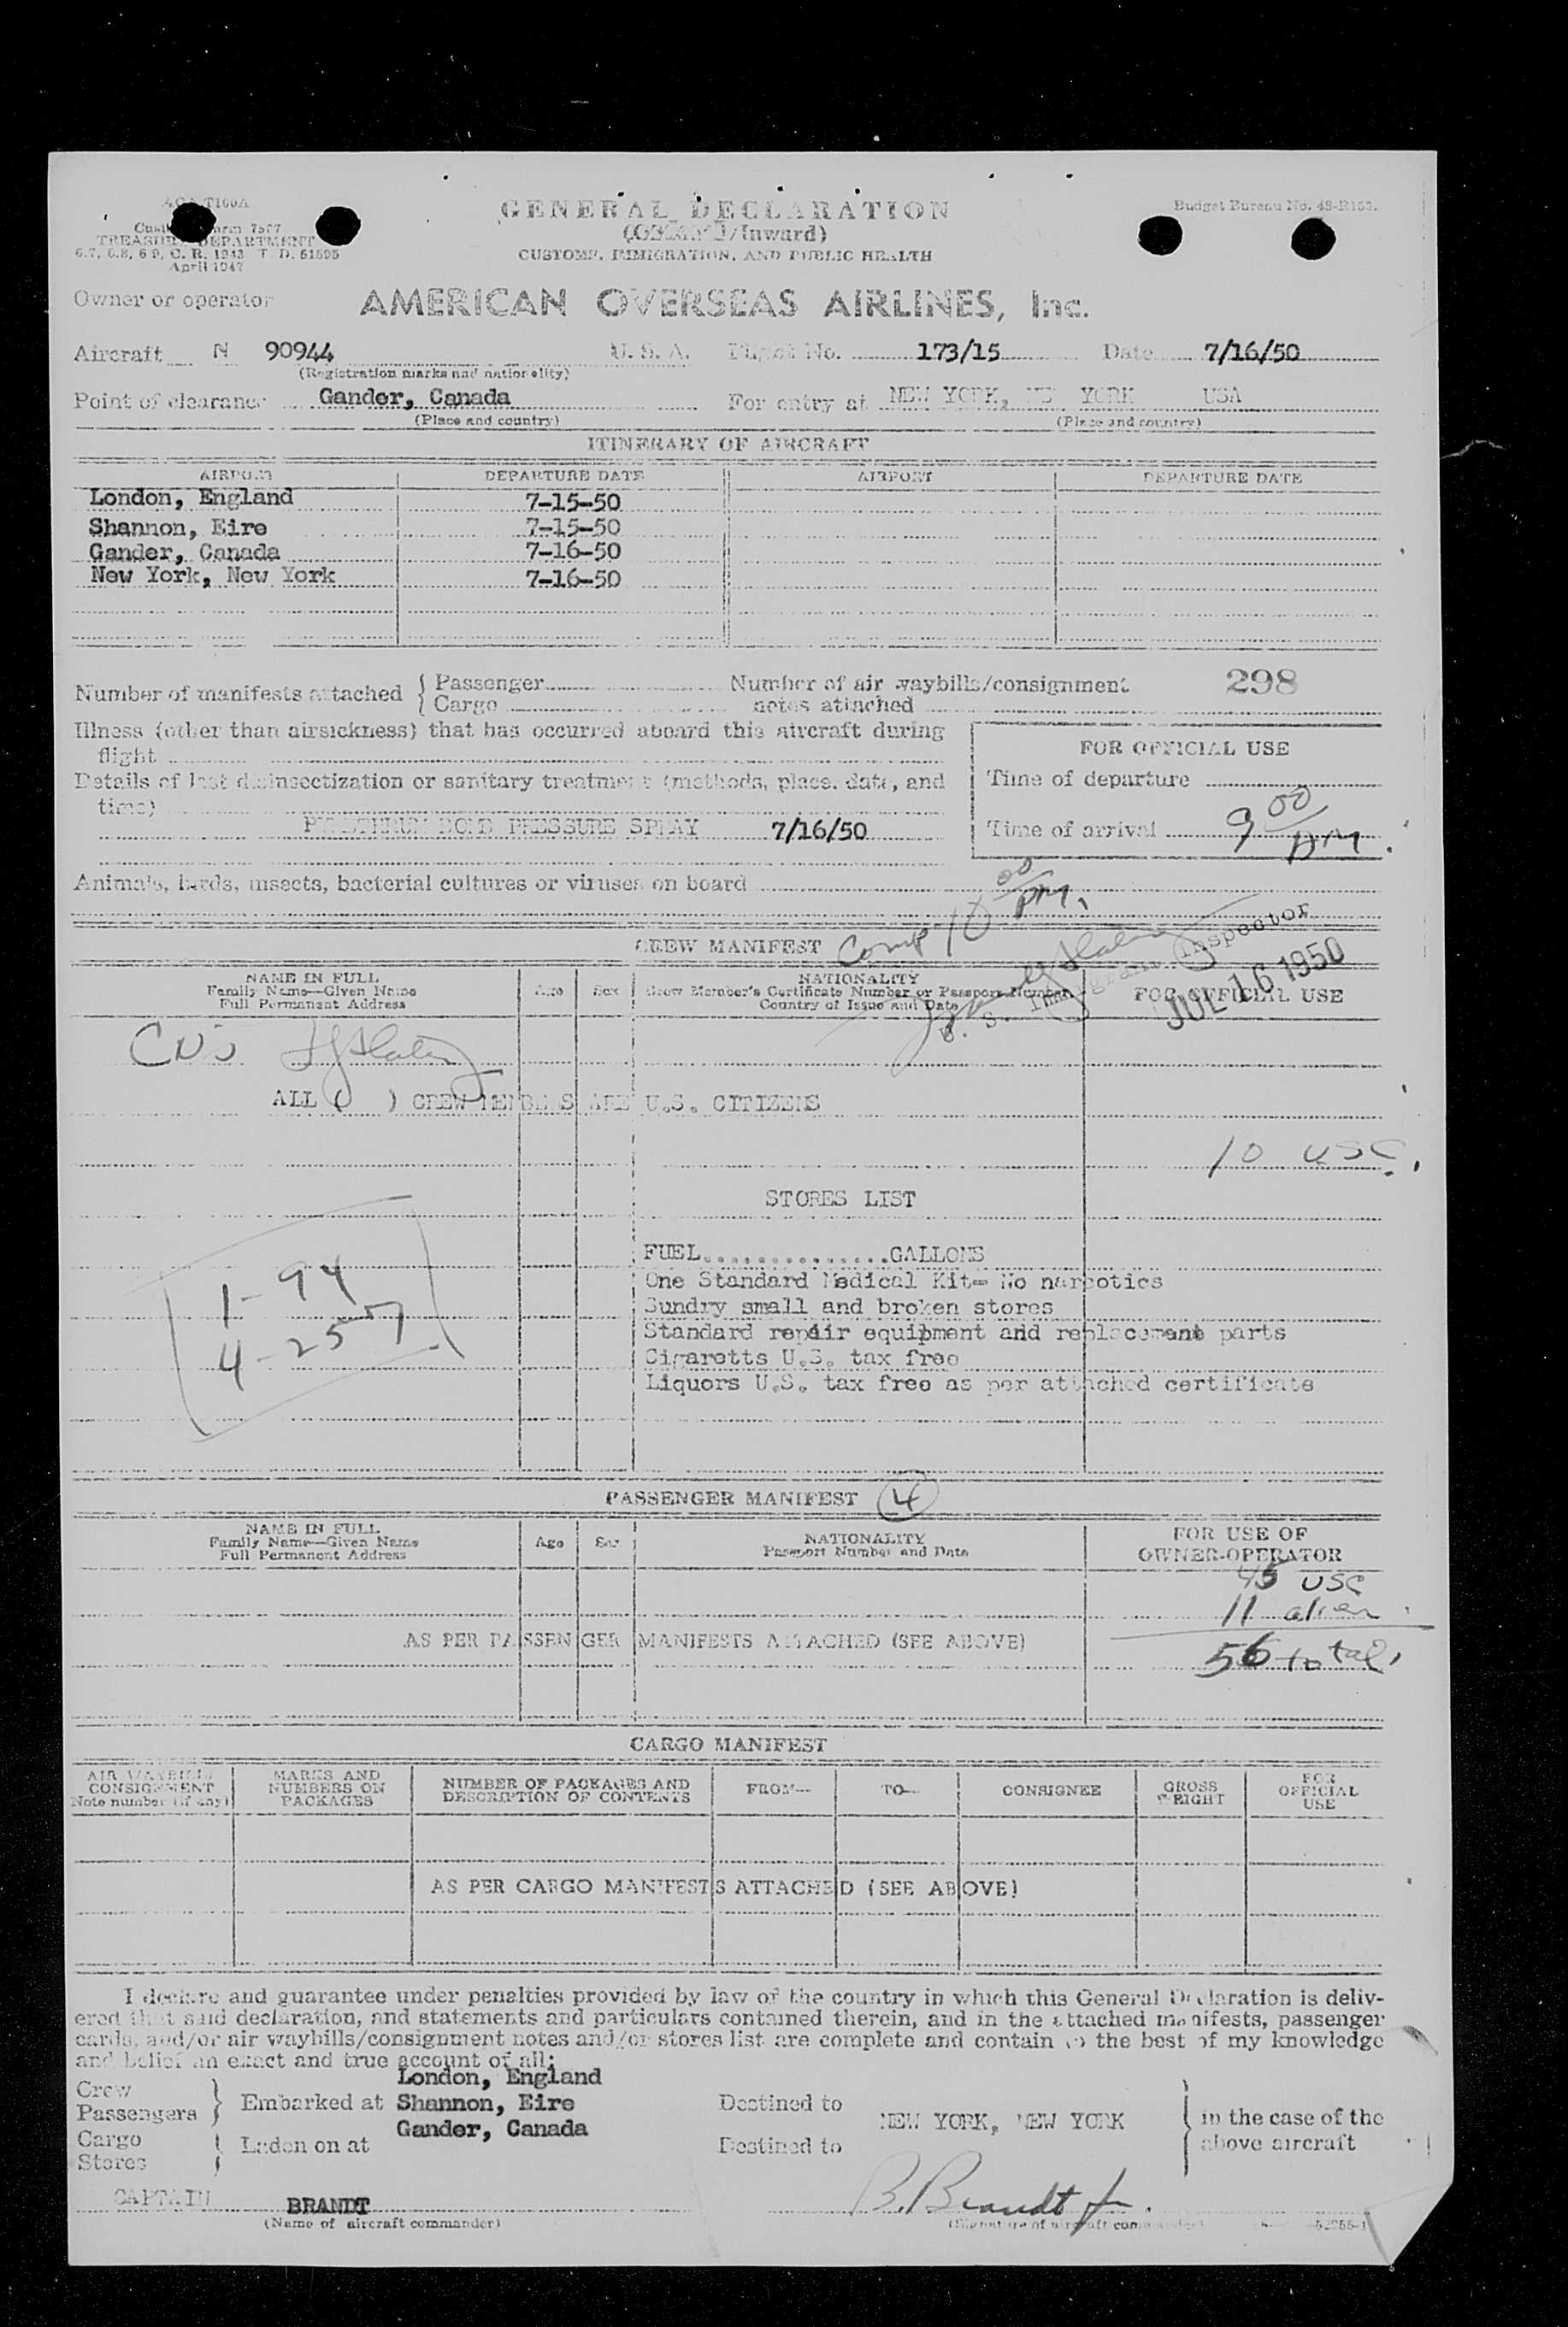 GENERAL DECLARATION
Budget Bureau No. 48-R153.
TREASURY DEPARTMENT
April 1947
(Outward/Inward)
CUSTOMS, IMMIGRATION, AND PUBLIC HEALTH
Owner or operator AMERICAN OVERSEAS AIRLINES, Inc.
Aircraft N 90944 U. S. A. Flight No. 173/15 Date 7/16/50
(Registration marks and nationality)
Point of clearance Gander, Canada For entry at NEW YORK, NEW YORK USA
(Place and country) (Place and country)
ITINERARY OF AIRCRAFT
AIRPORT DEPARTURE DATE AIRPORT DEPARTURE DATE
London, England 7-15-50
Shannon, Eire 7-15-50
Gander, Canada 7-16-50
New York, New York 7-16-50
Number of manifests attached { Passenger Number of air waybills/consignment 298
Cargo notes attached
Illness (other than airsickness) that has occurred aboard this aircraft during
flight
FOR OFFICIAL USE
Details of last disinsectization or sanitary treatment (methods, place, date, and
time)
Time of departure
PYRETHRUM BOMB PRESSURE SPRAY 7/16/50
Time of arrival 9 00 PM.
Animals, birds, insects, bacterial cultures or viruses on board
CREW MANIFEST Comp 10 00 PM.
Inspector
JUL 16 1950
NAME IN FULL
Family Name—Given Name
Full Permanent Address
Age Sex
NATIONALITY
Crew Member's Certificate Number or Passport Number
Country of Issue and Date
FOR OFFICIAL USE
ALL ( ) CREW MEMBERS ARE U.S. CITIZENS
10 USC.
STORES LIST
FUEL...............GALLONS
One Standard Medical Kit- No narcotics
Sundry small and broken stores
Standard repair equipment and replacement parts
Cigaretts U.S. tax free
Liquors U.S. tax free as per attached certificate
1-94
4-257
PASSENGER MANIFEST 4
NAME IN FULL
Family Name—Given Name
Full Permanent Address
Age Sex
NATIONALITY
Passport Number and Date
FOR USE OF
OWNER-OPERATOR
45 USC
11 alien
56 total.
AS PER PASSENGER MANIFESTS ATTACHED (SEE ABOVE)
CARGO MANIFEST
AIR WAYBILL/
CONSIGNMENT
Note number (if any)
MARKS AND
NUMBERS ON
PACKAGES
NUMBER OF PACKAGES AND
DESCRIPTION OF CONTENTS
FROM— TO— CONSIGNEE
GROSS
WEIGHT
FOR
OFFICIAL
USE
AS PER CARGO MANIFESTS ATTACHED (SEE ABOVE)
I declare and guarantee under penalties provided by law of the country in which this General Declaration is deliv-
ered that said declaration, and statements and particulars contained therein, and in the attached manifests, passenger
cards, and/or air waybills/consignment notes and/or stores list are complete and contain to the best of my knowledge
and belief an exact and true account of all:
London, England
Crew
Passengers } Embarked at Shannon, Eire Destined to
Gander, Canada
NEW YORK, NEW YORK
in the case of the
above aircraft
Cargo
Stores } Laden on at Destined to
CAPTAIN BRANDT B. Brandt Jr.
(Name of aircraft commander) (Signature of aircraft commander)